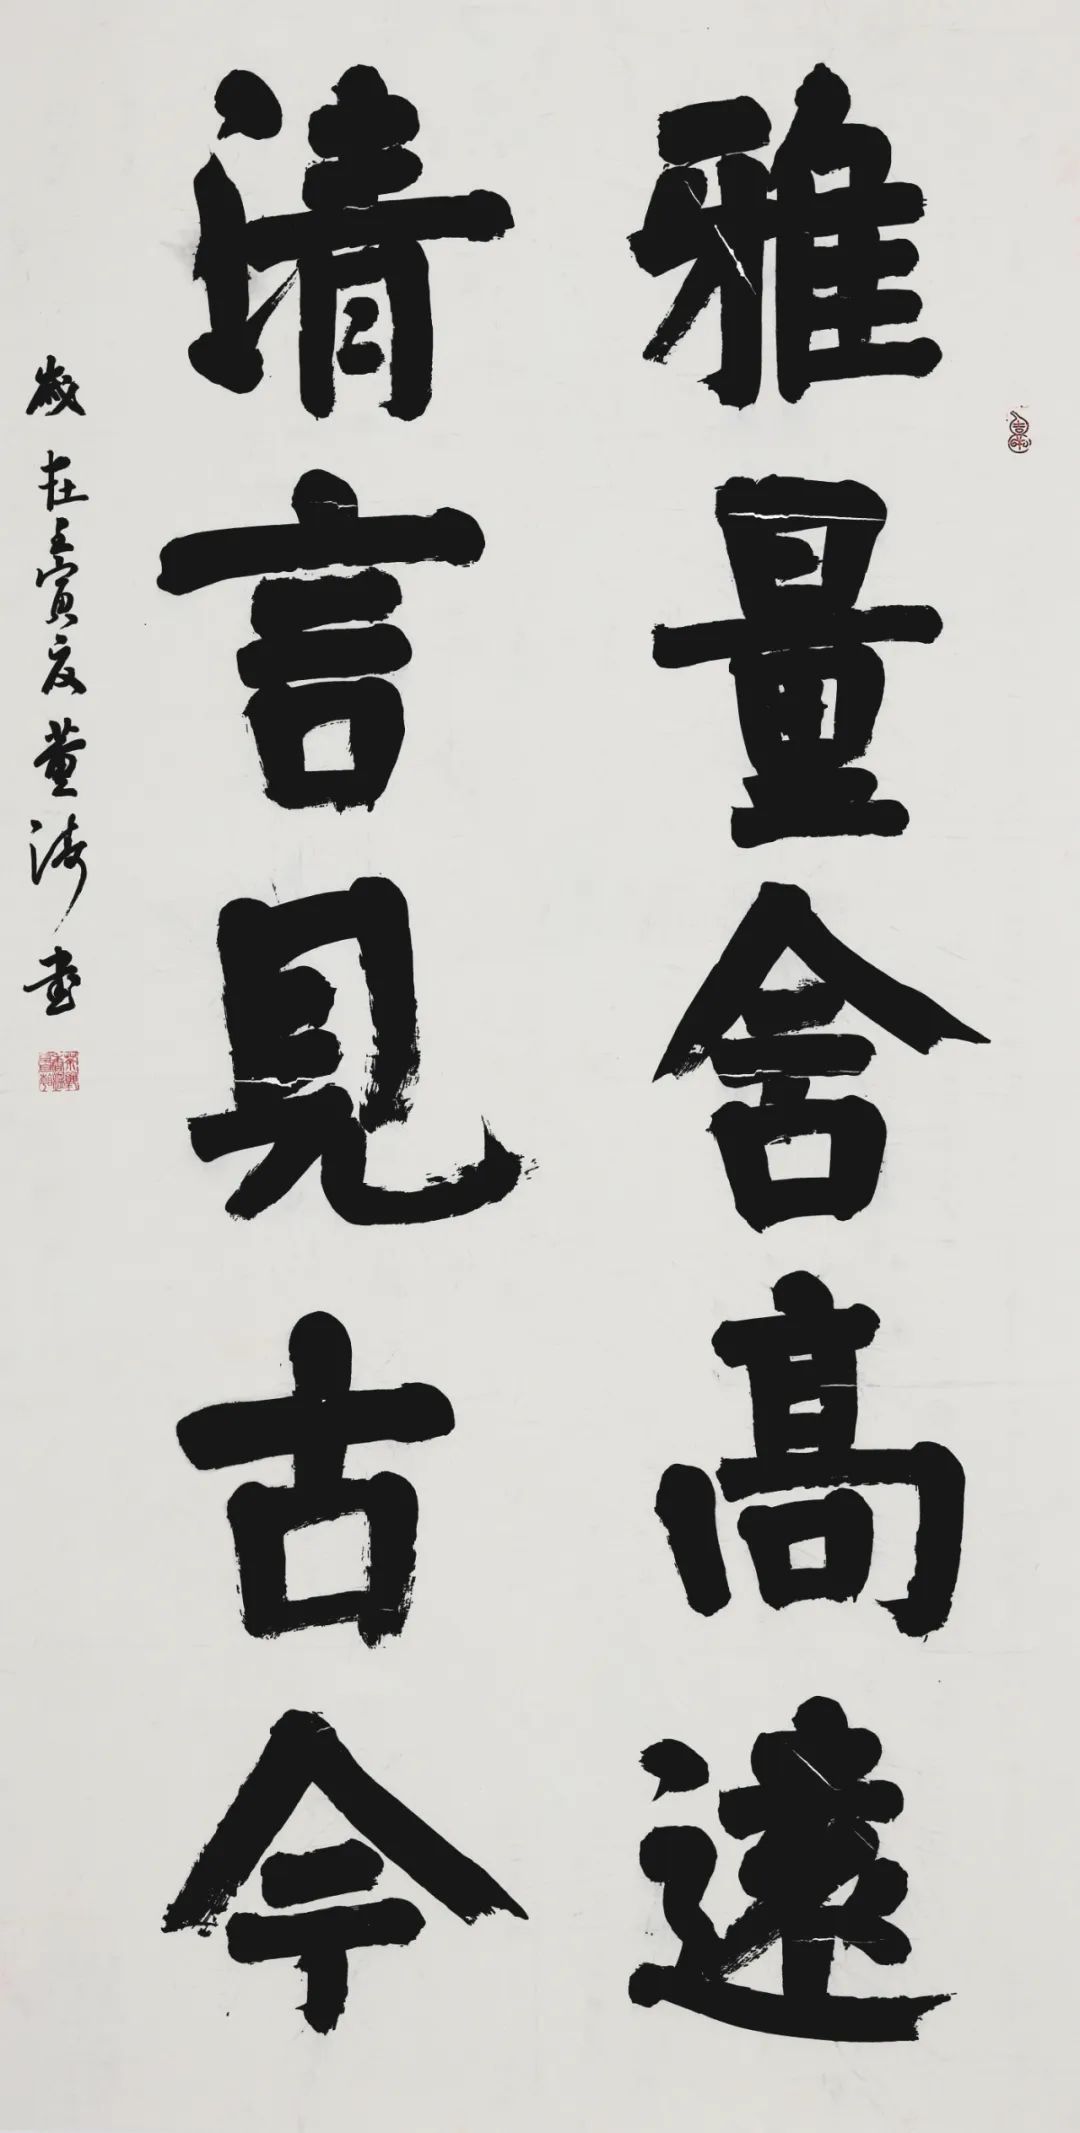 雅量含高遠
清言見古今
歲在壬寅夏董涛書